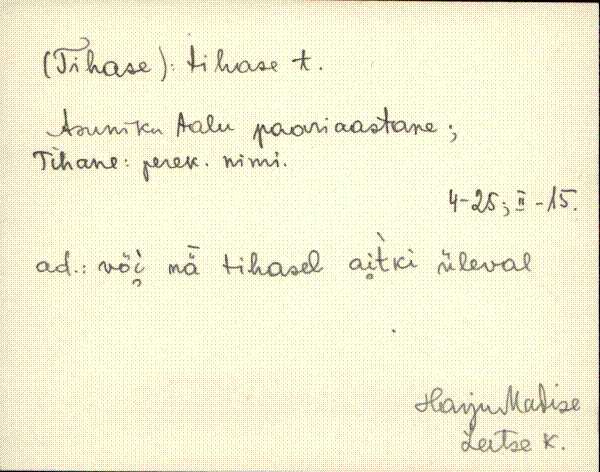 (Tihase): tihase t.
Asuniku talu paariaastane;
Tihane: perek. nimi.
4-25; II-15.
ad.: või mä tihasel aìtki üleval
Harju Madise
Leetse k.